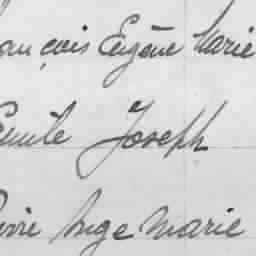 ançois Eugène Marie
Emile Joseph
Pierre Ange Marie